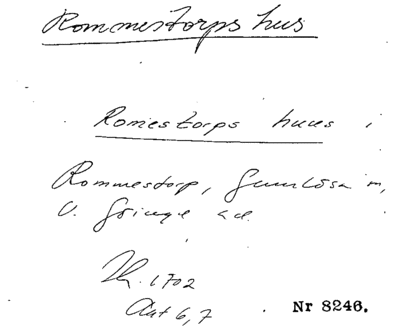 Rommestorps hus
Romestorps huus i
Rommestorp, Gumlösa sn,
V. Göinge hd.
Th. 1702
Akt 6, 7
Nr 8246.